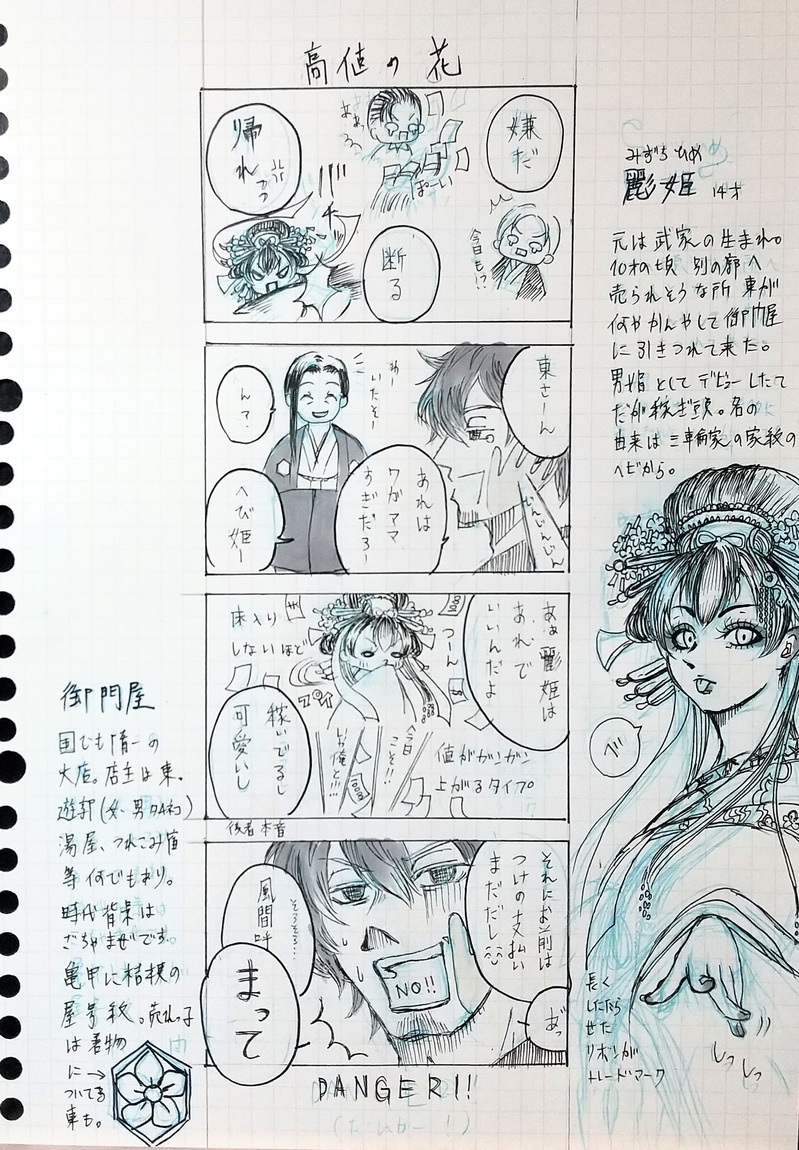 高値の花
嫌だ
ぽーい
帰れ
今日も!?
断る
東さーん
わー
いたぞー
ん?
あれは
ワガママ
すぎだろー
へび姫ー
じんじんじん
あぁ麗姫は
あれで
いいんだよ
つーん
床入り
しないほど
稼いでるし
可愛いし
今日
こそ!!
いや俺と!!!
値がガンガン
上がるタイプ
役者本音
それにお前は
つけの支払い
まだだし
あ゛っ
そろそろ…
風間呼
まって
NO!!
DANGER!!
みずち ひめ
麗姫 14才
元は武家の生まれ。
10才の頃 別の廓へ
売られそうな所 東が
何やかんやして御門屋
に引きつれて来た。
男娼としてデビューしたて
だが稼ぎ頭。名の
由来は三輪家の家紋の
ヘビから。
べー
長く
したたら
せた
リボンが
トレードマーク
しっ
しっ
御門屋
国でも随一の
大店。店主は東。
遊郭(女、男タネコ)
湯屋、つれこみ宿
等何でもあり。
時代背景は
ごちゃまぜです。
亀甲に桔梗の
屋号紋。売れっ子
は着物
に→
ついてる
東も。